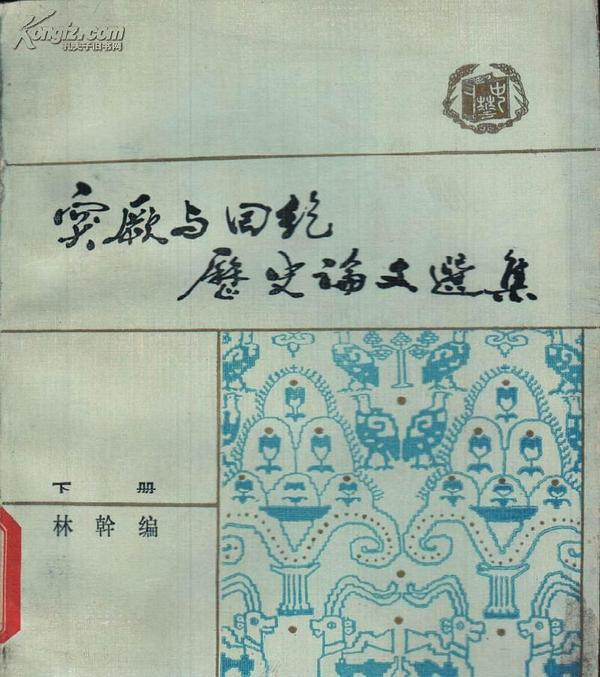 Kongfz.com
孔夫子旧书网
中华
突厥与回纥
歷史論文選集
下 册
林 幹 编